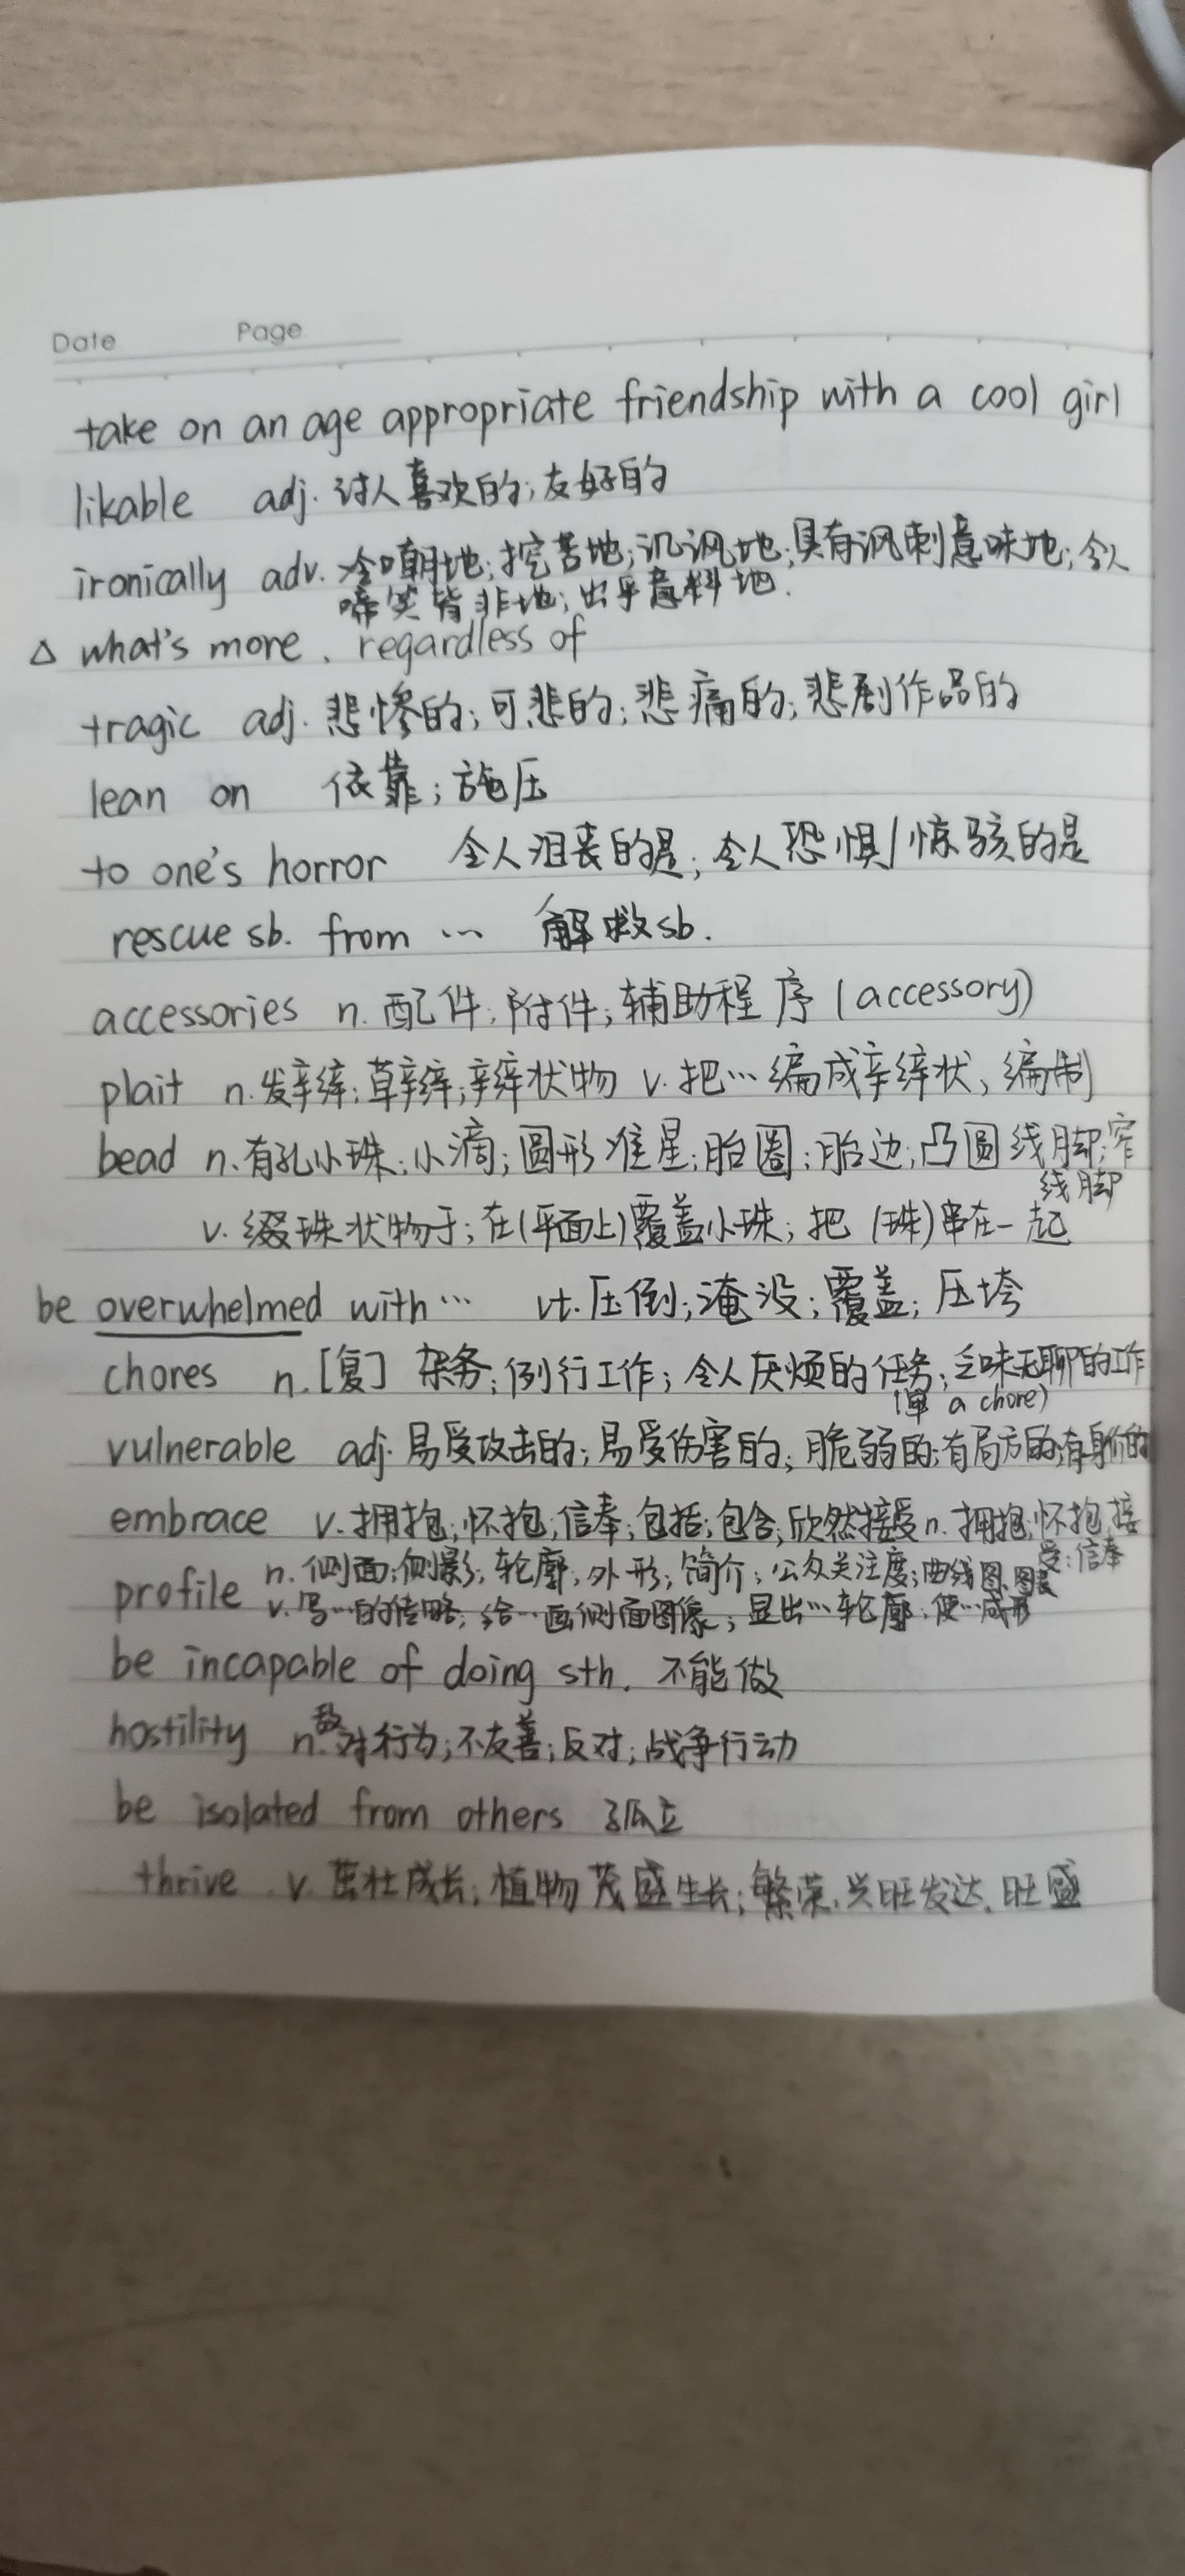 Date Page
take on an age appropriate friendship with a cool girl
likable adj. 讨人喜欢的; 友好的
ironically adv. 冷嘲地; 挖苦地; 讥讽地; 具有讽刺意味地; 令人
啼笑皆非地; 出乎意料地.
△ what's more . regardless of
tragic adj. 悲惨的; 可悲的; 悲痛的; 悲剧作品的
lean on 依靠; 施压
to one's horror 令人沮丧的是; 令人恐惧/惊骇的是
rescue sb. from … 解救sb.
accessories n. 配件; 附件; 辅助程序 (accessory)
plait n. 发辫; 草辫; 辫状物 v. 把…编成辫状, 编制
bead n. 有孔小珠; 小滴; 圆形准星; 胎圈; 胎边; 凸圆线脚; 窄
线脚
v. 缀珠状物于; 在(平面上)覆盖小珠; 把(珠)串在一起
be overwhelmed with … vt. 压倒; 淹没; 覆盖; 压垮
chores n. [复] 杂务; 例行工作; 令人厌烦的任务; 乏味无聊的工作
(单 a chore)
vulnerable adj. 易受攻击的; 易受伤害的; 脆弱的; 有局方的; 有身价的
embrace v. 拥抱; 怀抱; 信奉; 包括; 包含; 欣然接受 n. 拥抱; 怀抱; 接
受; 信奉
profile n. 侧面; 侧影; 轮廓; 外形; 简介; 公众关注度; 曲线图; 图表
v. 写…的传略; 给…画侧面图像; 显出…轮廓; 使…成形
be incapable of doing sth. 不能做
hostility n. 敌对行为; 不友善; 反对; 战争行动
be isolated from others 孤立
thrive v. 茁壮成长; 植物茂盛生长; 繁荣, 兴旺发达, 旺盛